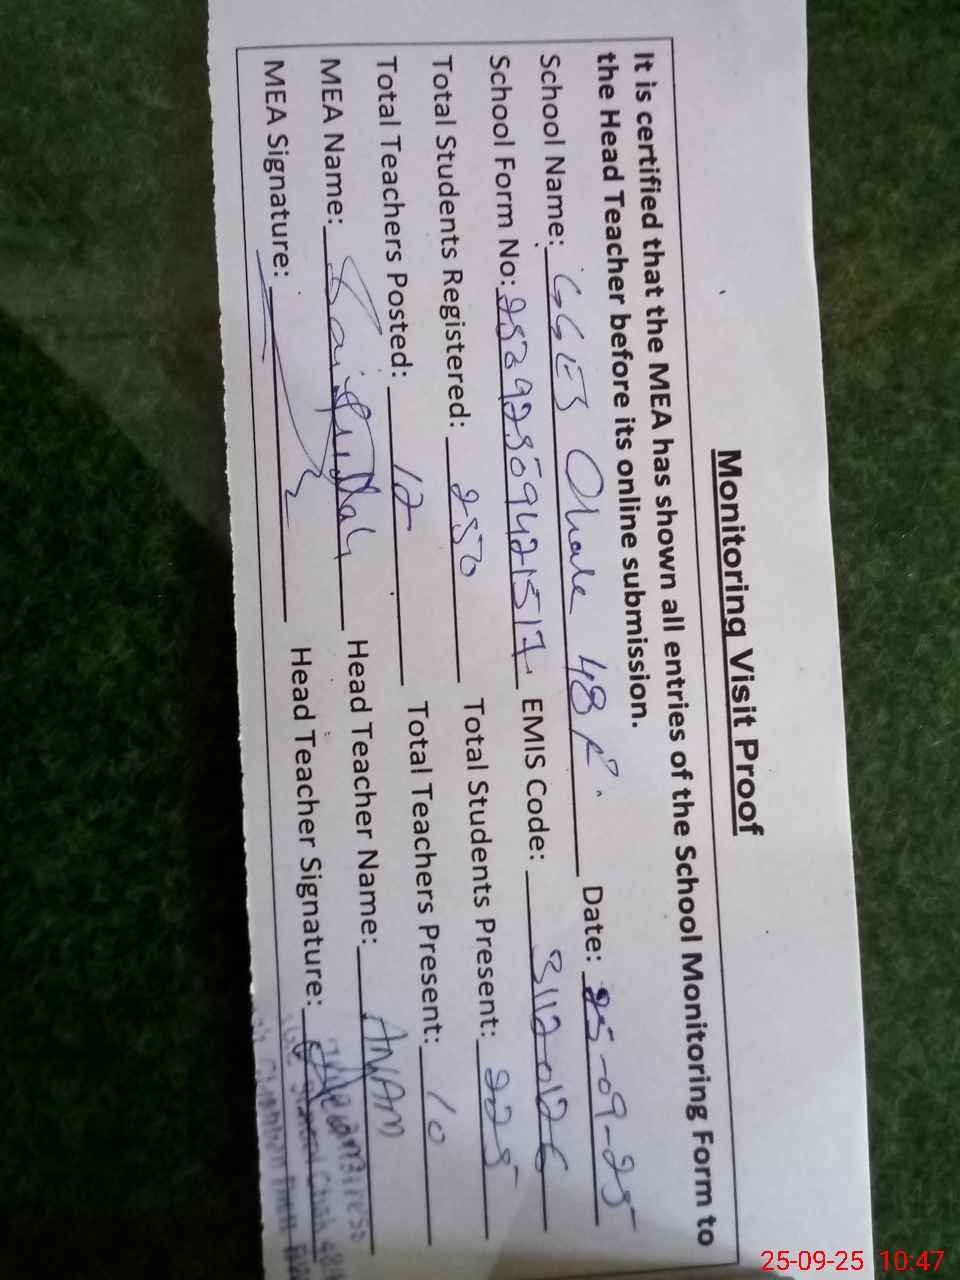 Monitoring Visit Proof
It is certified that the MEA has shown all entries of the School Monitoring Form to
the Head Teacher before its online submission.
School Name: GGES Chak 48 P. Date: 25-09-25
School Form No: EMIS Code: 31120126
Total Students Registered: 250 Total Students Present: 225
Total Teachers Posted: 12 Total Teachers Present: 10
MEA Name: Head Teacher Name: ANAM
MEA Signature: Head Teacher Signature:
25-09-25 10:47